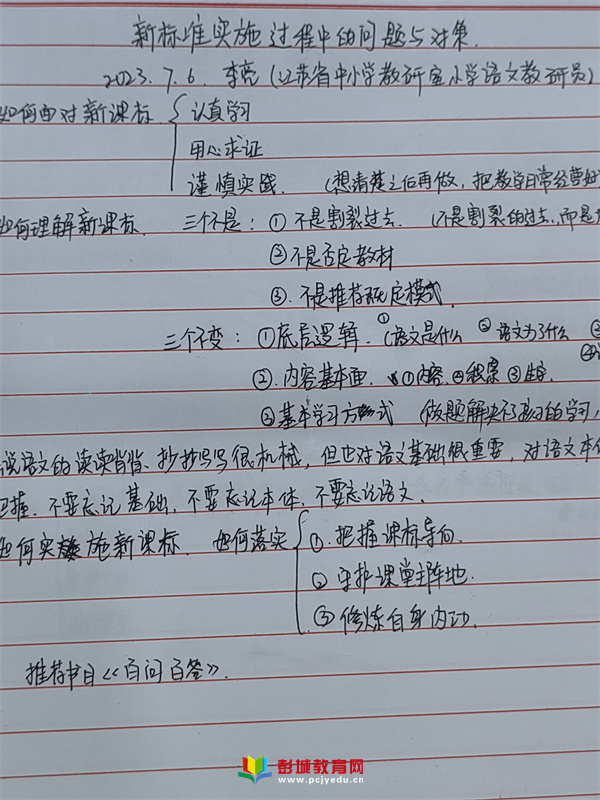 新标准实施过程中的问题与对策.
2023.7.6. 李亮(江苏省中小学教研室小学语文教研员)
如何面对新课标 { 认真学习
用心求证
谨慎实践. (想清楚之后再做,把教学日常经营好
如何理解新课标. 三个不是: ① 不是割裂过去. (不是割裂的过去,而是
② 不是否定教材
③. 不是推荐既定模式.
三个不变: ①底层逻辑. ①语文是什么 ②语文为了什么 ③
②. 内容基本面. ①内容. ②积累 ③生字. ④
③基本学习方式 (做题解决不了孩子的学习,
说语文的读读背背、抄抄写写很机械,但也对语文基础很重要,对语文本体
把握. 不要忘记基础,不要忘记本体. 不要忘记语文.
如何实施新课标. 如何落实 { ①. 把握课标导向.
② 守护课堂主阵地.
③ 修炼自身内功.
推荐书目《百问百答》.
彭城教育网
www.pcjyedu.cn